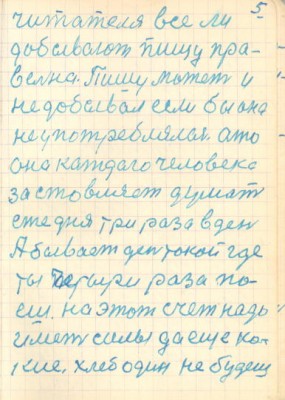 5
читателя все ли
добывают пищу пра-
велна. Пищу может и
не добывал если бы она
не употреблялся. ато
она каждаго человека
застовляет думат
еже дня три раза в ден
А бывает ден токой где
ты четыри раза по-
еш. на этот счет надь
имет силы да еще ка-
кие, хлеб один не будеш